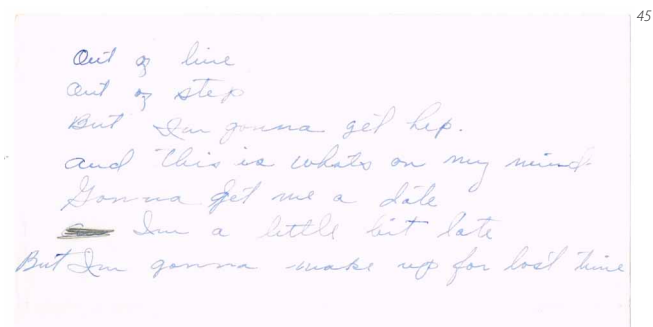 45
Out of line
Out of step
But I'm gonna get hep.
and this is whats on my mind
Gonna get me a date
I'm a little bit late
But I'm gonna make up for lost time